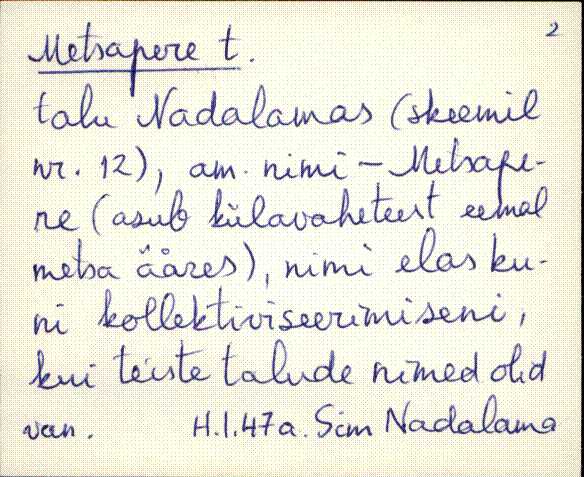 2
Metsapere t.
talu Nadalamas (skeemil
nr. 12), am. nimi – Metsape-
re (asub külavaheteest eemal
metsa ääres), nimi elas ku-
ni kollektiviseerimiseni,
kui teiste talude nimed olid
van. H.I.47a. Sim Nadalama